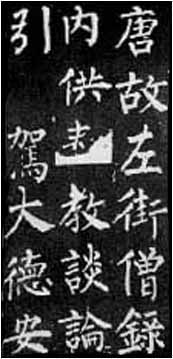 唐故左街僧録
内供教談論
引駕大德安